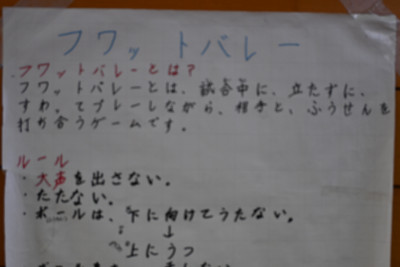 フワットバレー
フワットバレーとは?
フワットバレーとは、試合中に、立たずに、
すわってプレーしながら、相手と、ふうせんを
打ち合うゲームです。
ルール
・大声を出さない。
・たたない。
・ボールは、下に向けてうたない。
↓
上にうつ